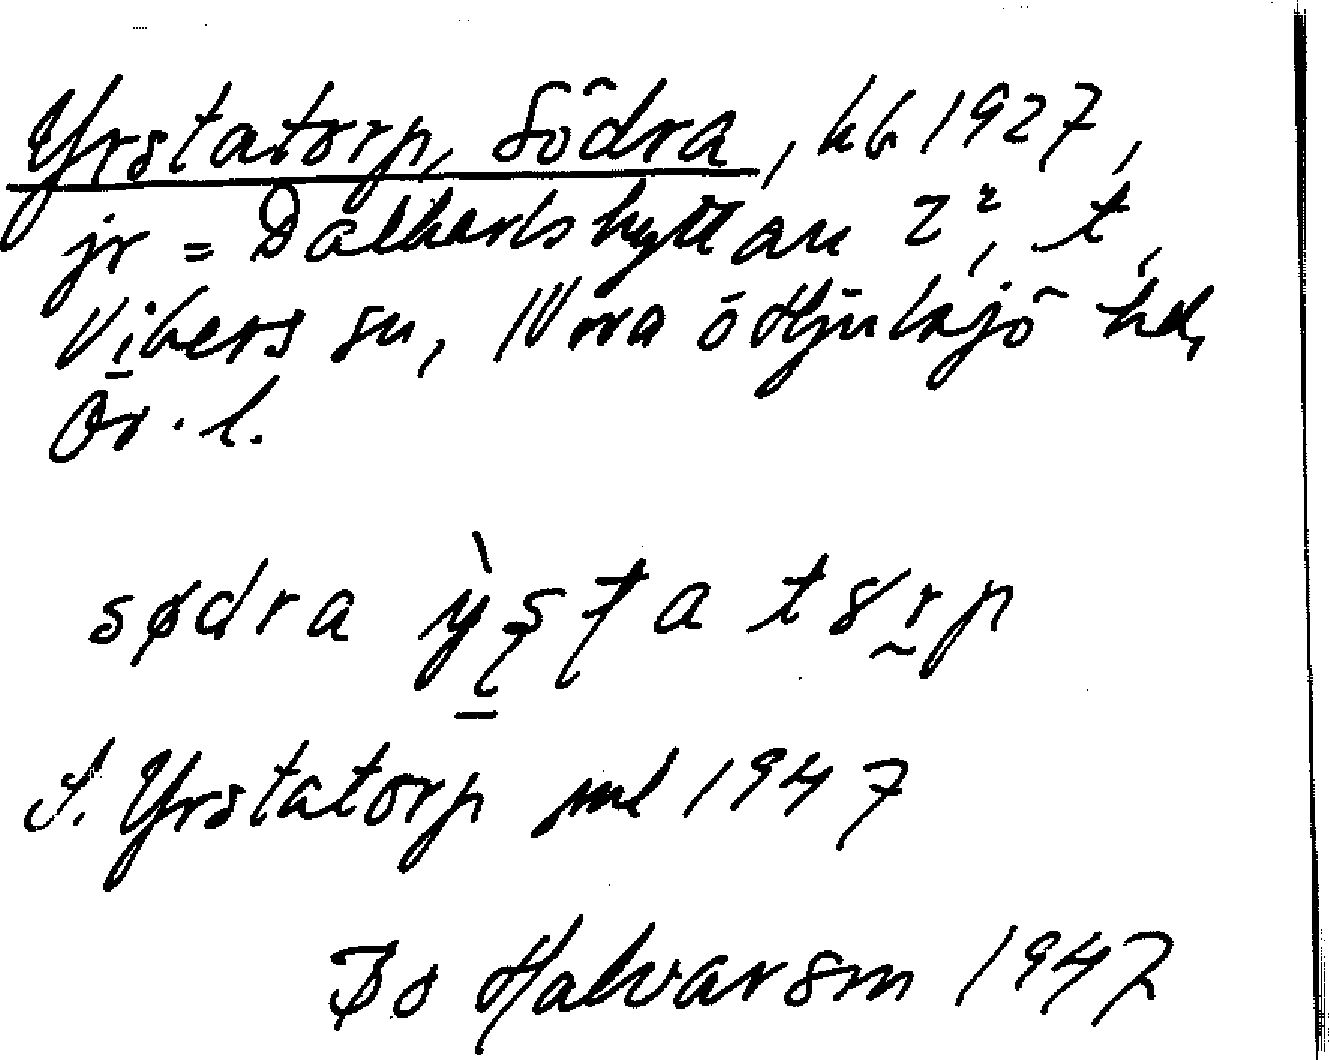 Yrstatorp, Södra, kb 1927,
jr = Dalkarlshyttan 2², t,
Vibers sn, Nora o Hjulsjö hd,
Ör. l.
södra
S. Yrstatorp jml 1947
Bo Halvarson 1947